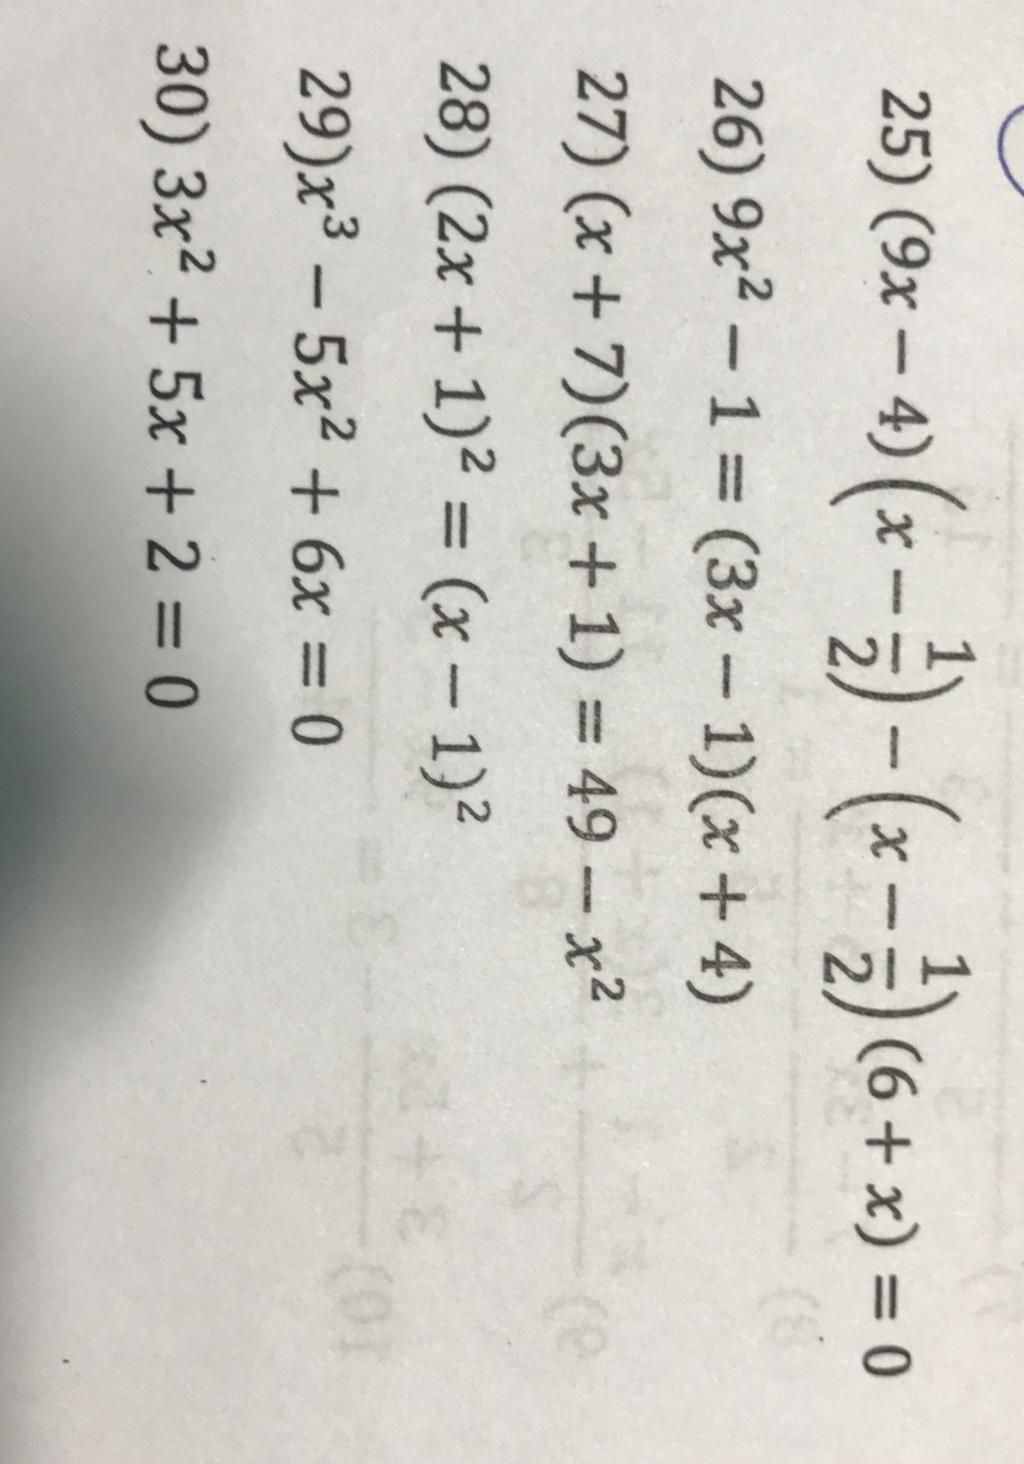 25) (9x − 4)(x − 1/2) − (x − 1/2)(6 + x) = 0
26) 9x² − 1 = (3x − 1)(x + 4)
27) (x + 7)(3x + 1) = 49 − x²
28) (2x + 1)² = (x − 1)²
29)x³ − 5x² + 6x = 0
30) 3x² + 5x + 2 = 0